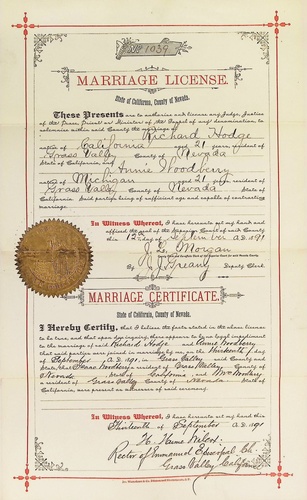 No 1039
MARRIAGE LICENSE.
State of California, County of Nevada.
These Presents are to authorize and license any Judge, Justice
of the Peace, Priest or Minister of the Gospel of any denomination, to
solemnize within said County the marriage of
Richard Hodge
native of California aged 21 years, resident of
Grass Valley County of Nevada
State of California, and Annie Woodberry
native of Michigan aged 21 years, resident of
Grass Valley, County of Nevada State of
California. Said parties being of sufficient age and capable of contracting
marriage.
In Witness Whereof, I have hereunto set my hand and
affixed the seal of the Superior Court of said County
this 12th day of September A.D. 1891
J. L. Morgan
Deputy Clerk.
MARRIAGE CERTIFICATE.
State of California, County of Nevada.
I Hereby Certify, that I believe the facts stated in the above license
to be true, and that upon due inquiry, there appears to be no legal impediment
to the marriage of said Richard Hodge and Annie Woodberry
that said parties were joined in marriage by me, on the thirteenth day
of September A.D. 1891, in Grass Valley, said County and
State; that a resident of Grass Valley,
County of Nevada State of California, and
a resident of Grass Valley County of Nevada State of
California, were present as witnesses of said ceremony.
In Witness Whereof, I have hereunto set my hand this
Thirteenth of September A.D. 1891
Rector of Emmanuel Episcopal Ch.
Grass Valley California